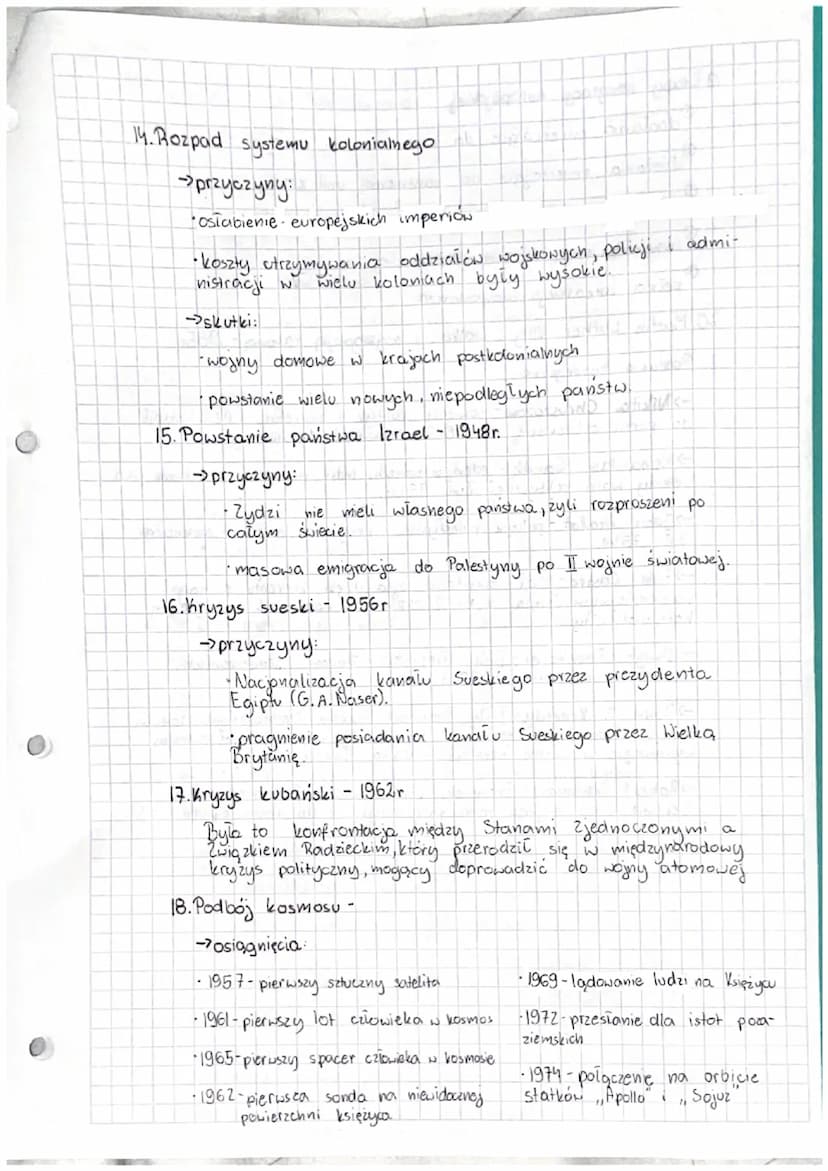 14. Rozpad systemu kolonialnego
→przyczyny:
·osłabienie europejskich imperiów
·koszty utrzymywania oddziałów wojskowych, policji i admi-
nistracji w wielu koloniach były wysokie.
→skutki:
·wojny domowe w krajach postkolonialnych
·powstanie wielu nowych, niepodległych państw.
15. Powstanie państwa Izrael - 1948r.
→przyczyny:
·Żydzi nie mieli własnego państwa, żyli rozproszeni po
całym świecie.
·masowa emigracja do Palestyny po II wojnie światowej.
16. Kryzys sueski - 1956r
→przyczyny:
·Nacjonalizacja kanału Sueskiego przez prezydenta
Egiptu (G.A. Naser).
·pragnienie posiadania kanału Sueskiego przez Wielką
Brytanię.
17. Kryzys kubański - 1962r
Była to konfrontacja między Stanami Zjednoczonymi a
Związkiem Radzieckim, który przerodził się w międzynarodowy
kryzys polityczny, mogący doprowadzić do wojny atomowej
18. Podbój kosmosu -
→osiągnięcia:
·1957- pierwszy sztuczny satelita
·1961- pierwszy lot człowieka w kosmos
·1965- pierwszy spacer człowieka w kosmosie
·1962- pierwsza sonda na niewidocznej
powierzchni księżyca
·1969- lądowanie ludzi na Księżycu
·1972- przesłanie dla istot poza-
ziemskich
·1974- połączenie na orbicie
statków „Apollo" i „Sojuz"